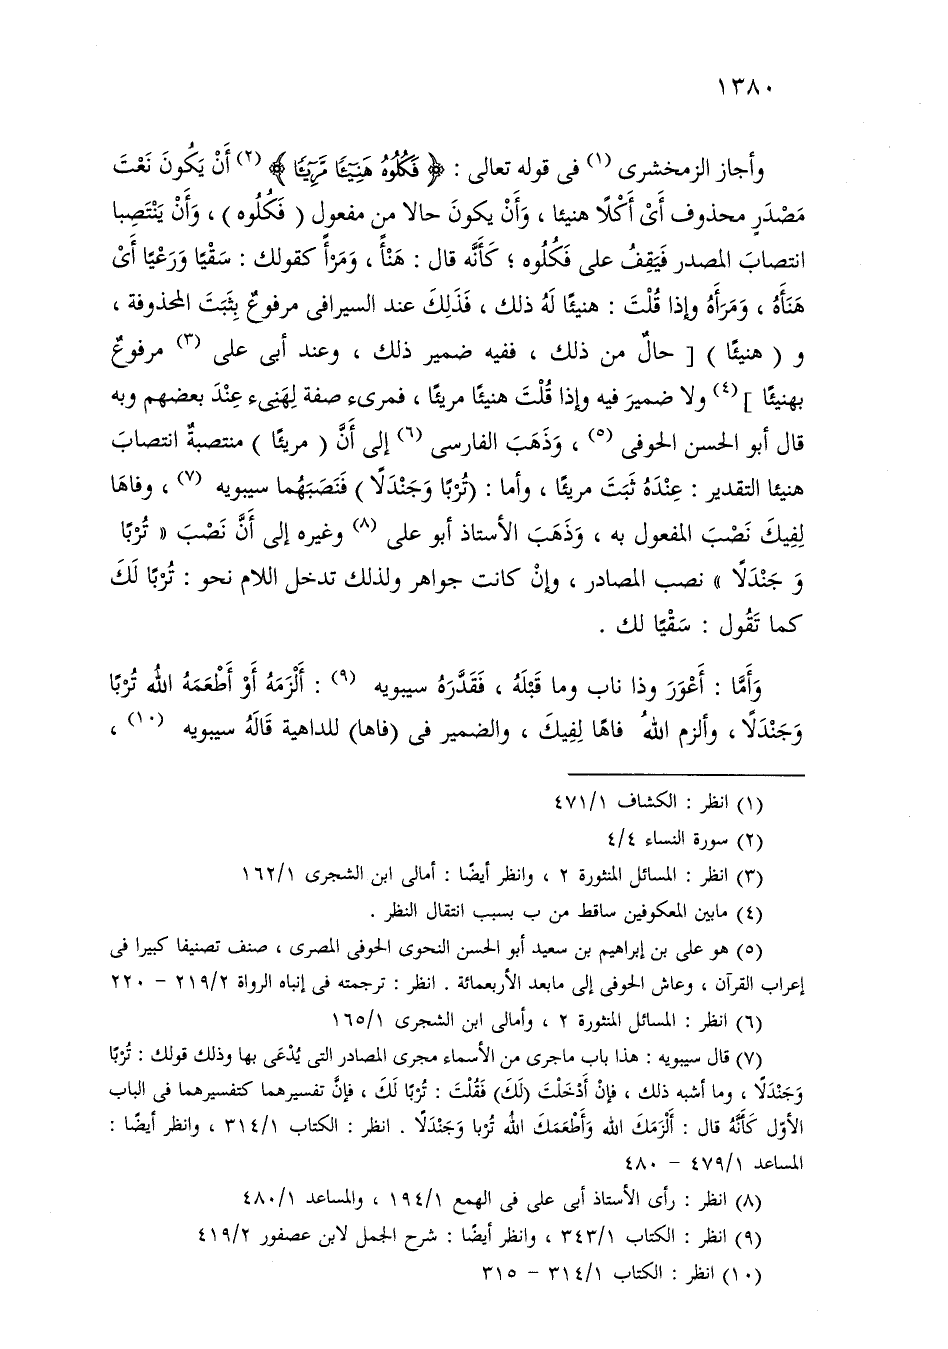 ١٣٨٠
وأجاز الزمخشرى (١) فى قوله تعالى : ﴿ فَكُلُوهُ هَنِيٓـًٔا مَّرِيٓـًٔا ﴾ (٢) أَنْ يَكُونَ نَعْتَ
مَصْدَرٍ محذوف أَىْ أَكْلًا هنيئا ، وَأَنْ يكونَ حالا من مفعول ( فَكُلُوه ) ، وَأَنْ يَنْتَصِبا
انتصابَ المصدر فَيَقِفُ على فَكُلُوه ؛ كَأَنَّه قال : هَنْأً ، وَمَرْأً كقولك : سَقْيًا وَرَعْيًا أَىْ
هَنَأَهُ ، وَمَرَأَهُ وإذا قُلْتَ : هنيئًا لَهُ ذلك ، فَذَلِكَ عند السيرافى مرفوعٌ بِثَبَتَ المحذوفة ،
و ( هنيئًا ) [ حالٌ من ذلك ، ففيه ضمير ذلك ، وعند أبى على (٣) مرفوعٌ
بهنيئًا ] (٤) ولا ضميرَ فيه وإذا قُلْتَ هنيئًا مريئًا ، فمرىء صفة لِهَنِىء عِنْدَ بعضهم وبه
قال أبو الحسن الحوفى (٥) ، وَذَهَبَ الفارسى (٦) إلى أَنَّ ( مريئًا ) منتصبةٌ انتصابَ
هنيئا التقدير : عِنْدَهُ ثَبَتَ مريئًا ، وأما : (تُرْبًا وَجَنْدَلًا) فَنَصَبَهُما سيبويه (٧) ، وفاهَا
لِفِيكَ نَصْبَ المفعول به ، وَذَهَبَ الأستاذ أبو على (٨) وغيره إلى أَنَّ نَصْبَ « تُرْبًا
وَ جَنْدَلًا » نصب المصادر ، وإنْ كانت جواهر ولذلك تدخل اللام نحو : تُرْبًا لَكَ
كما تَقُول : سَقْيًا لك .
وَأَمَّا : أَعْوَرَ وذا ناب وما قَبْلَهُ ، فَقَدَّرَهُ سيبويه (٩) : أَلْزَمَهُ أَوْ أَطْعَمَهُ اللهُ تُرْبًا
وَجَنْدَلًا ، وألزم اللهُ فاهًا لِفِيكَ ، والضمير فى (فاها) للداهية قَالَهُ سيبويه (١٠) ،
(١) انظر : الكشاف ٤٧١/١
(٢) سورة النساء ٤/٤
(٣) انظر : المسائل المنثورة ٢ ، وانظر أيضًا : أمالى ابن الشجرى ١٦٢/١
(٤) مابين المعكوفين ساقط من ب بسبب انتقال النظر .
(٥) هو على بن إبراهيم بن سعيد أبو الحسن النحوى الحوفى المصرى ، صنف تصنيفا كبيرا فى
إعراب القرآن ، وعاش الحوفى إلى مابعد الأربعمائة . انظر : ترجمته فى إنباه الرواة ٢١٩/٢ – ٢٢٠
(٦) انظر : المسائل المنثورة ٢ ، وأمالى ابن الشجرى ١٦٥/١
(٧) قال سيبويه : هذا باب ماجرى من الأسماء مجرى المصادر التى يُدْعَى بها وذلك قولك : تُرْبًا
وَجَنْدَلًا ، وما أشبه ذلك ، فإنْ أَدْخَلْتَ (لَكَ) فَقُلْتَ : تُرْبًا لَكَ ، فإنَّ تفسيرهما كتفسيرهما فى الباب
الأوّل كَأَنَّهُ قال : أَلْزَمَكَ الله وَأَطْعَمَكَ اللهُ تُربا وَجَنْدَلًا . انظر : الكتاب ٣١٤/١ ، وانظر أيضًا :
المساعد ٤٧٩/١ – ٤٨٠
(٨) انظر : رأى الأستاذ أبى على فى الهمع ١٩٤/١ ، والمساعد ٤٨٠/١
(٩) انظر : الكتاب ٣٤٣/١ ، وانظر أيضًا : شرح الجمل لابن عصفور ٤١٩/٢
(١٠) انظر : الكتاب ٣١٤/١ – ٣١٥